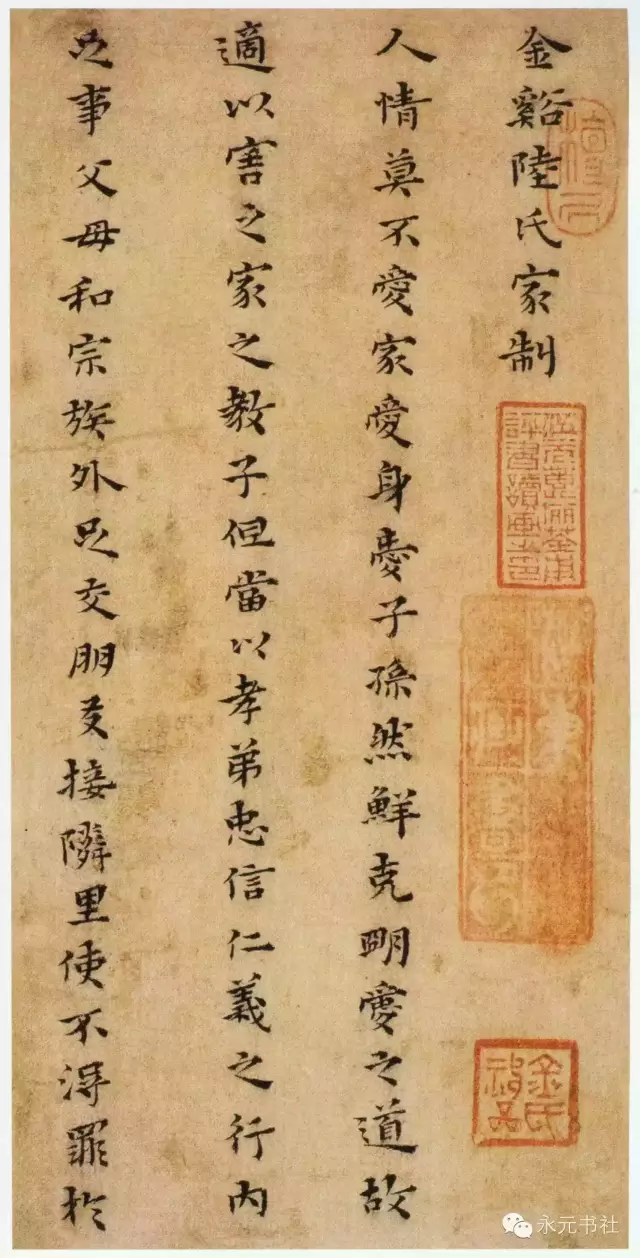 金谿陸氏家制
人情莫不愛家愛身愛子孫然鮮克明愛之道故
適以害之家之教子但當以孝弟忠信仁義之行內
足事父母和宗族外足交朋友接隣里使不得罪於
金氏
永元书社